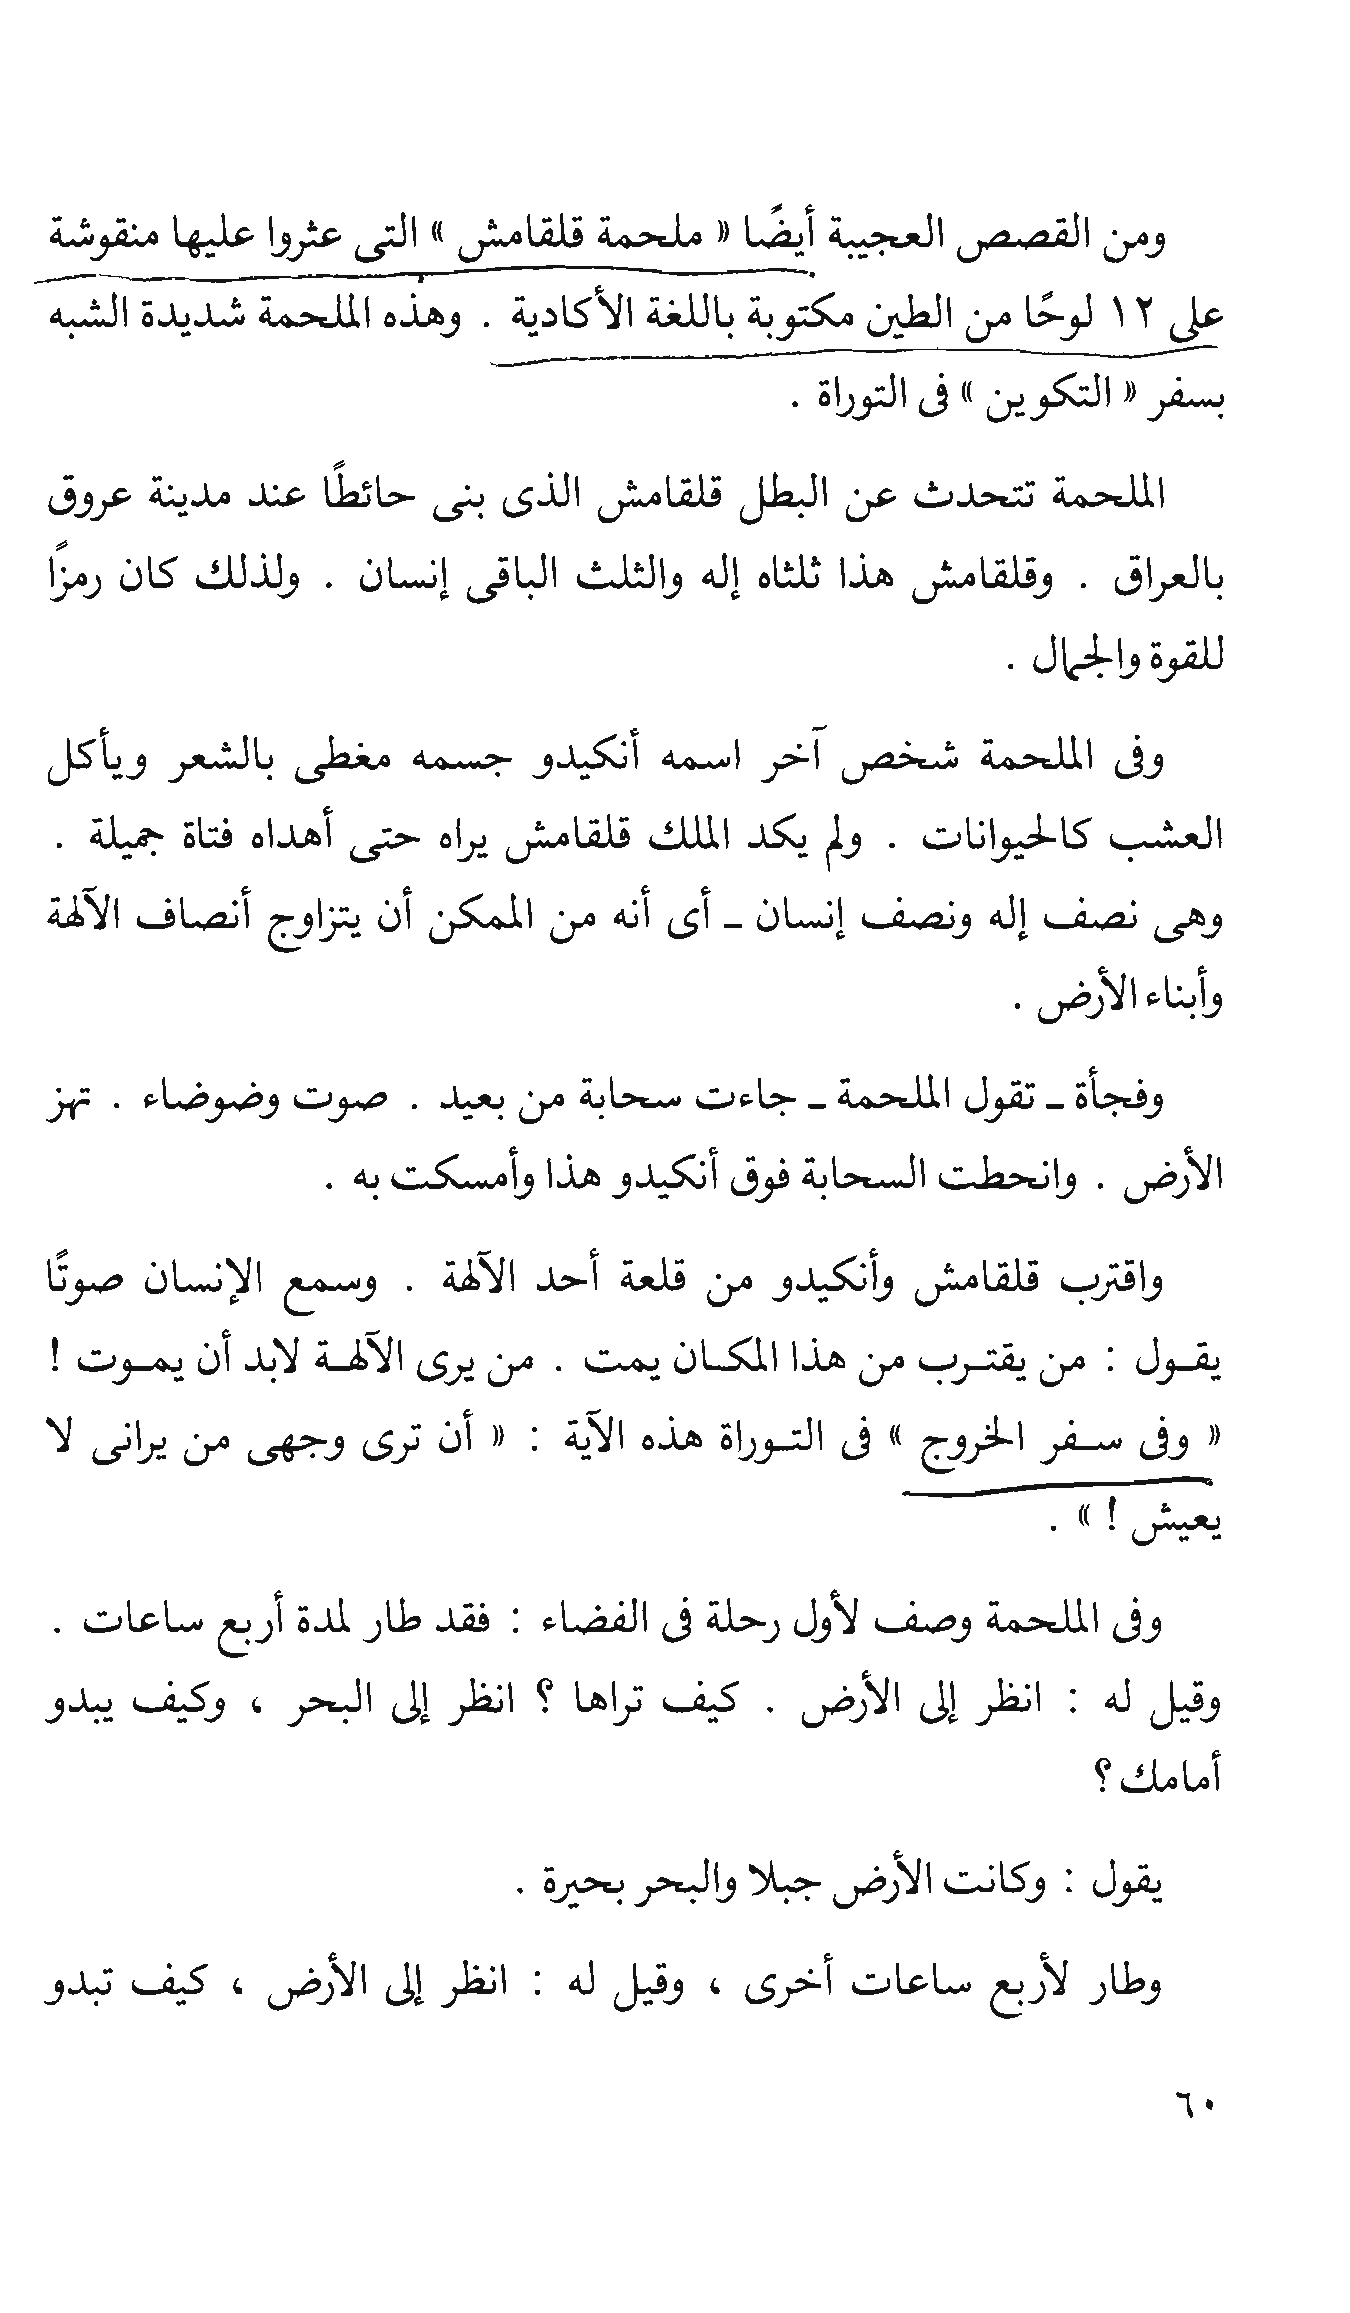 ومن القصص العجيبة أيضًا « ملحمة قلقامش » التى عثروا عليها منقوشة
على ١٢ لوحًا من الطين مكتوبة باللغة الأكادية . وهذه الملحمة شديدة الشبه
بسفر « التكوين » فى التوراة .
الملحمة تتحدث عن البطل قلقامش الذى بنى حائطًا عند مدينة عروق
بالعراق . وقلقامش هذا ثلثاه إله والثلث الباقى إنسان . ولذلك كان رمزًا
للقوة والجمال .
وفى الملحمة شخص آخر اسمه أنكيدو جسمه مغطى بالشعر ويأكل
العشب كالحيوانات . ولم يكد الملك قلقامش يراه حتى أهداه فتاة جميلة .
وهى نصف إله ونصف إنسان ـ أى أنه من الممكن أن يتزاوج أنصاف الآلهة
وأبناء الأرض .
وفجأة ـ تقول الملحمة ـ جاءت سحابة من بعيد . صوت وضوضاء . تهز
الأرض . وانحطت السحابة فوق أنكيدو هذا وأمسكت به .
واقترب قلقامش وأنكيدو من قلعة أحد الآلهة . وسمع الإنسان صوتًا
يقـول : من يقتـرب من هذا المكـان يمت . من يرى الآلهـة لابد أن يمـوت !
« وفى سـفر الخروج » فى التـوراة هذه الآية : « أن ترى وجهى من يرانى لا
يعيش ! » .
وفى الملحمة وصف لأول رحلة فى الفضاء : فقد طار لمدة أربع ساعات .
وقيل له : انظر إلى الأرض . كيف تراها ؟ انظر إلى البحر ، وكيف يبدو
أمامك ؟
يقول : وكانت الأرض جبلا والبحر بحيرة .
وطار لأربع ساعات أخرى ، وقيل له : انظر إلى الأرض ، كيف تبدو
٦٠